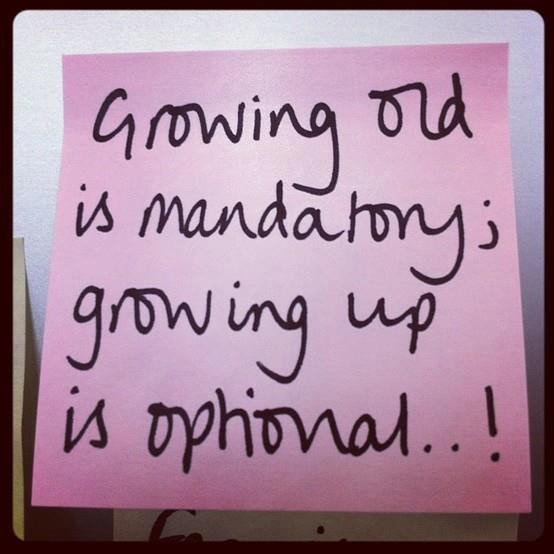 Growing old
is mandatory;
growing up
is optional..!